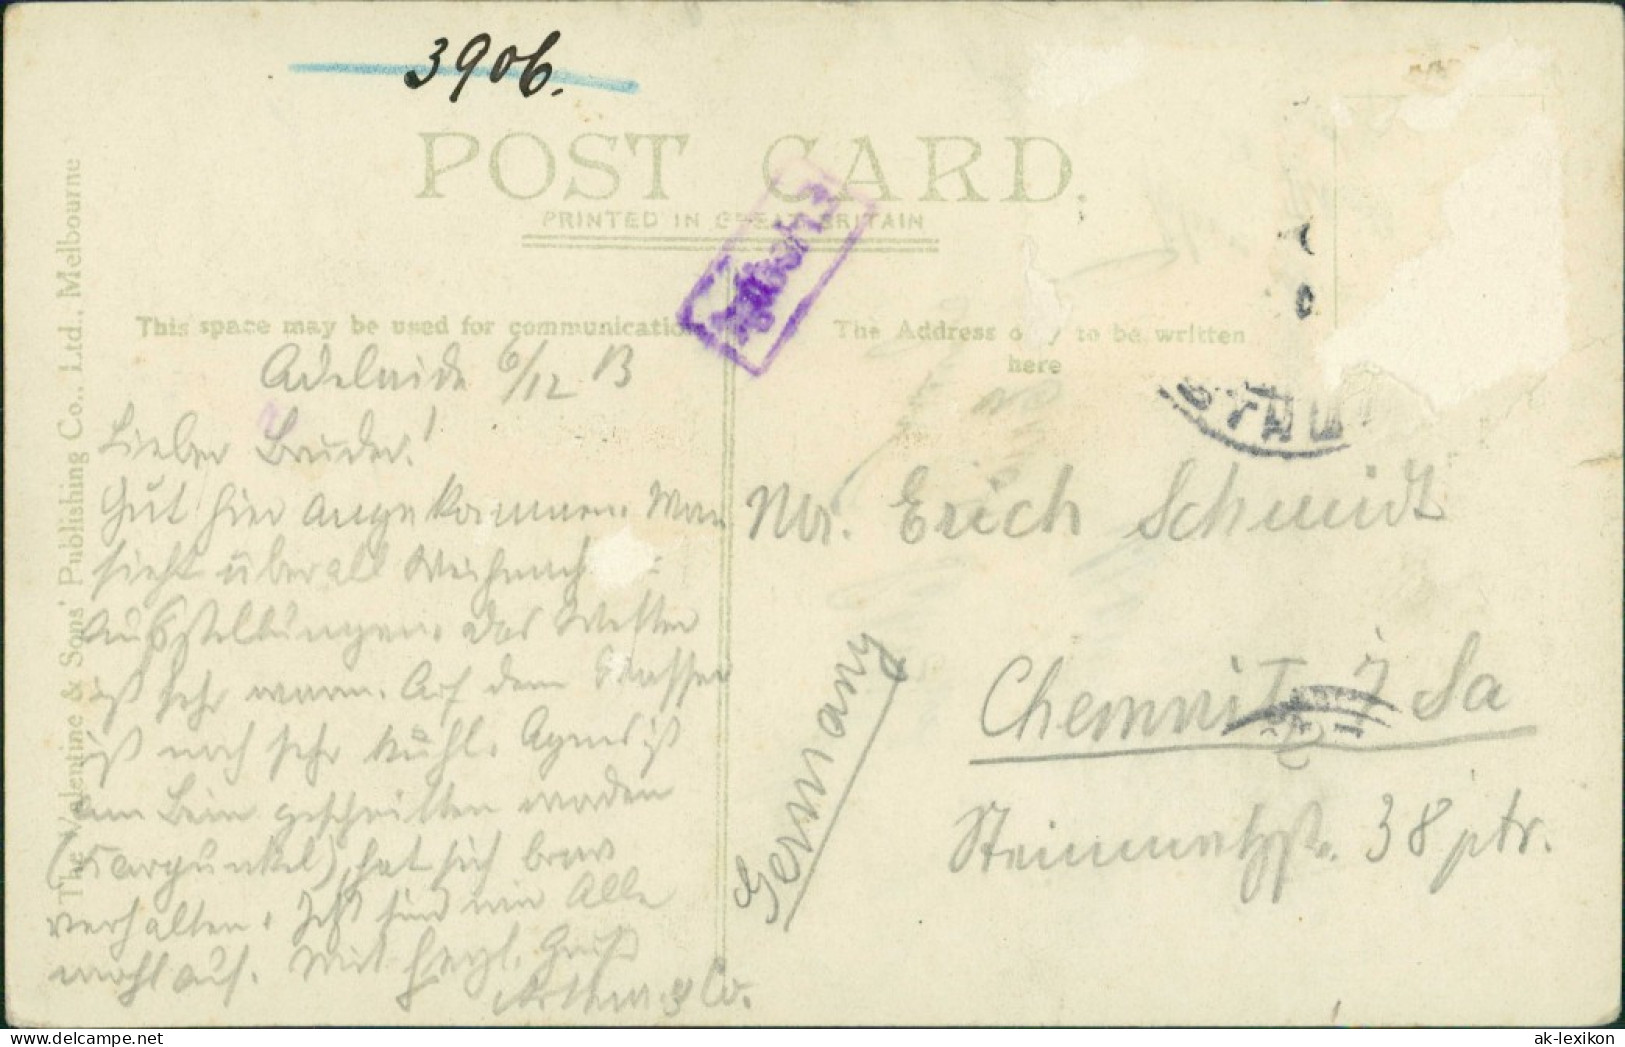 3906.
POST CARD.
PRINTED IN GREAT BRITAIN
This space may be used for communication
The Address only to be written
here
Adelaide 6/12 13
Lieber Bruder!
Gut hier angekommen. Man
sieht überall Weihnachts
Ausstellungen. Das Wetter
ist sehr warm. Auf dem Wasser
ist noch sehr kühl. Agnes ist
am Bein geschnitten worden
(Karfunkel), hat sich brav
verhalten. Jetzt sind wir Alle
wohlauf. Mit herzl. Gruß
Arthur & Co.
Mr. Erich Schmidt
Chemnitz i Sa
Steinmetzstr. 38 ptr.
Germany
The Valentine & Sons' Publishing Co., Ltd., Melbourne
delcampe.net
ak-lexikon